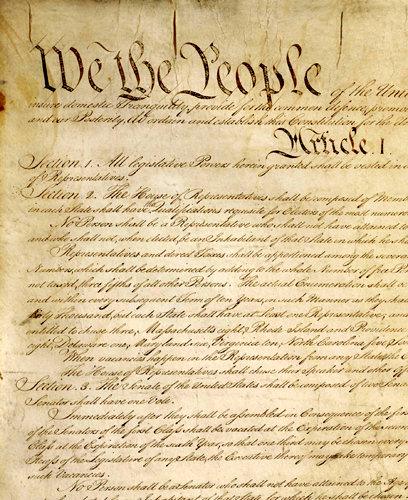 We the People of the Unit
insure domestic Tranquility, provide for the common defence, promote
and our Posterity, do ordain and establish this Constitution for the Un
Article. I.
Section. 1. All legislative Powers herein granted shall be vested in a
of Representatives.
Section. 2. The House of Representatives shall be composed of Memb
in each State shall have the Qualifications requisite for Electors of the most numero
No Person shall be a Representative who shall not have attained to
and who shall not, when elected, be an Inhabitant of that State in which he sha
Representatives and direct Taxes shall be apportioned among the severa
Numbers, which shall be determined by adding to the whole Number of free P
not taxed, three fifths of all other Persons. The actual Enumeration shall b
and within every subsequent Term of ten Years, in such Manner as they sha
thirty Thousand, but each State shall have at Least one Representative; and
entitled to chuse three, Massachusetts eight, Rhode Island and Providence
eight, Delaware one, Maryland six, Virginia ten, North Carolina five, So
When vacancies happen in the Representation from any State, the E
The House of Representatives shall chuse their Speaker and other Off
Section. 3. The Senate of the United States shall be composed of two Sena
Senator shall have one Vote.
Immediately after they shall be assembled in Consequence of the firs
of the Senators of the first Class shall be vacated at the Expiration of the secon
Class at the Expiration of the sixth Year, so that one third may be chosen every
Recess of the Legislature of any State, the Executive thereof may make temporary
such Vacancies.
No Person shall be a Senator who shall not have attained